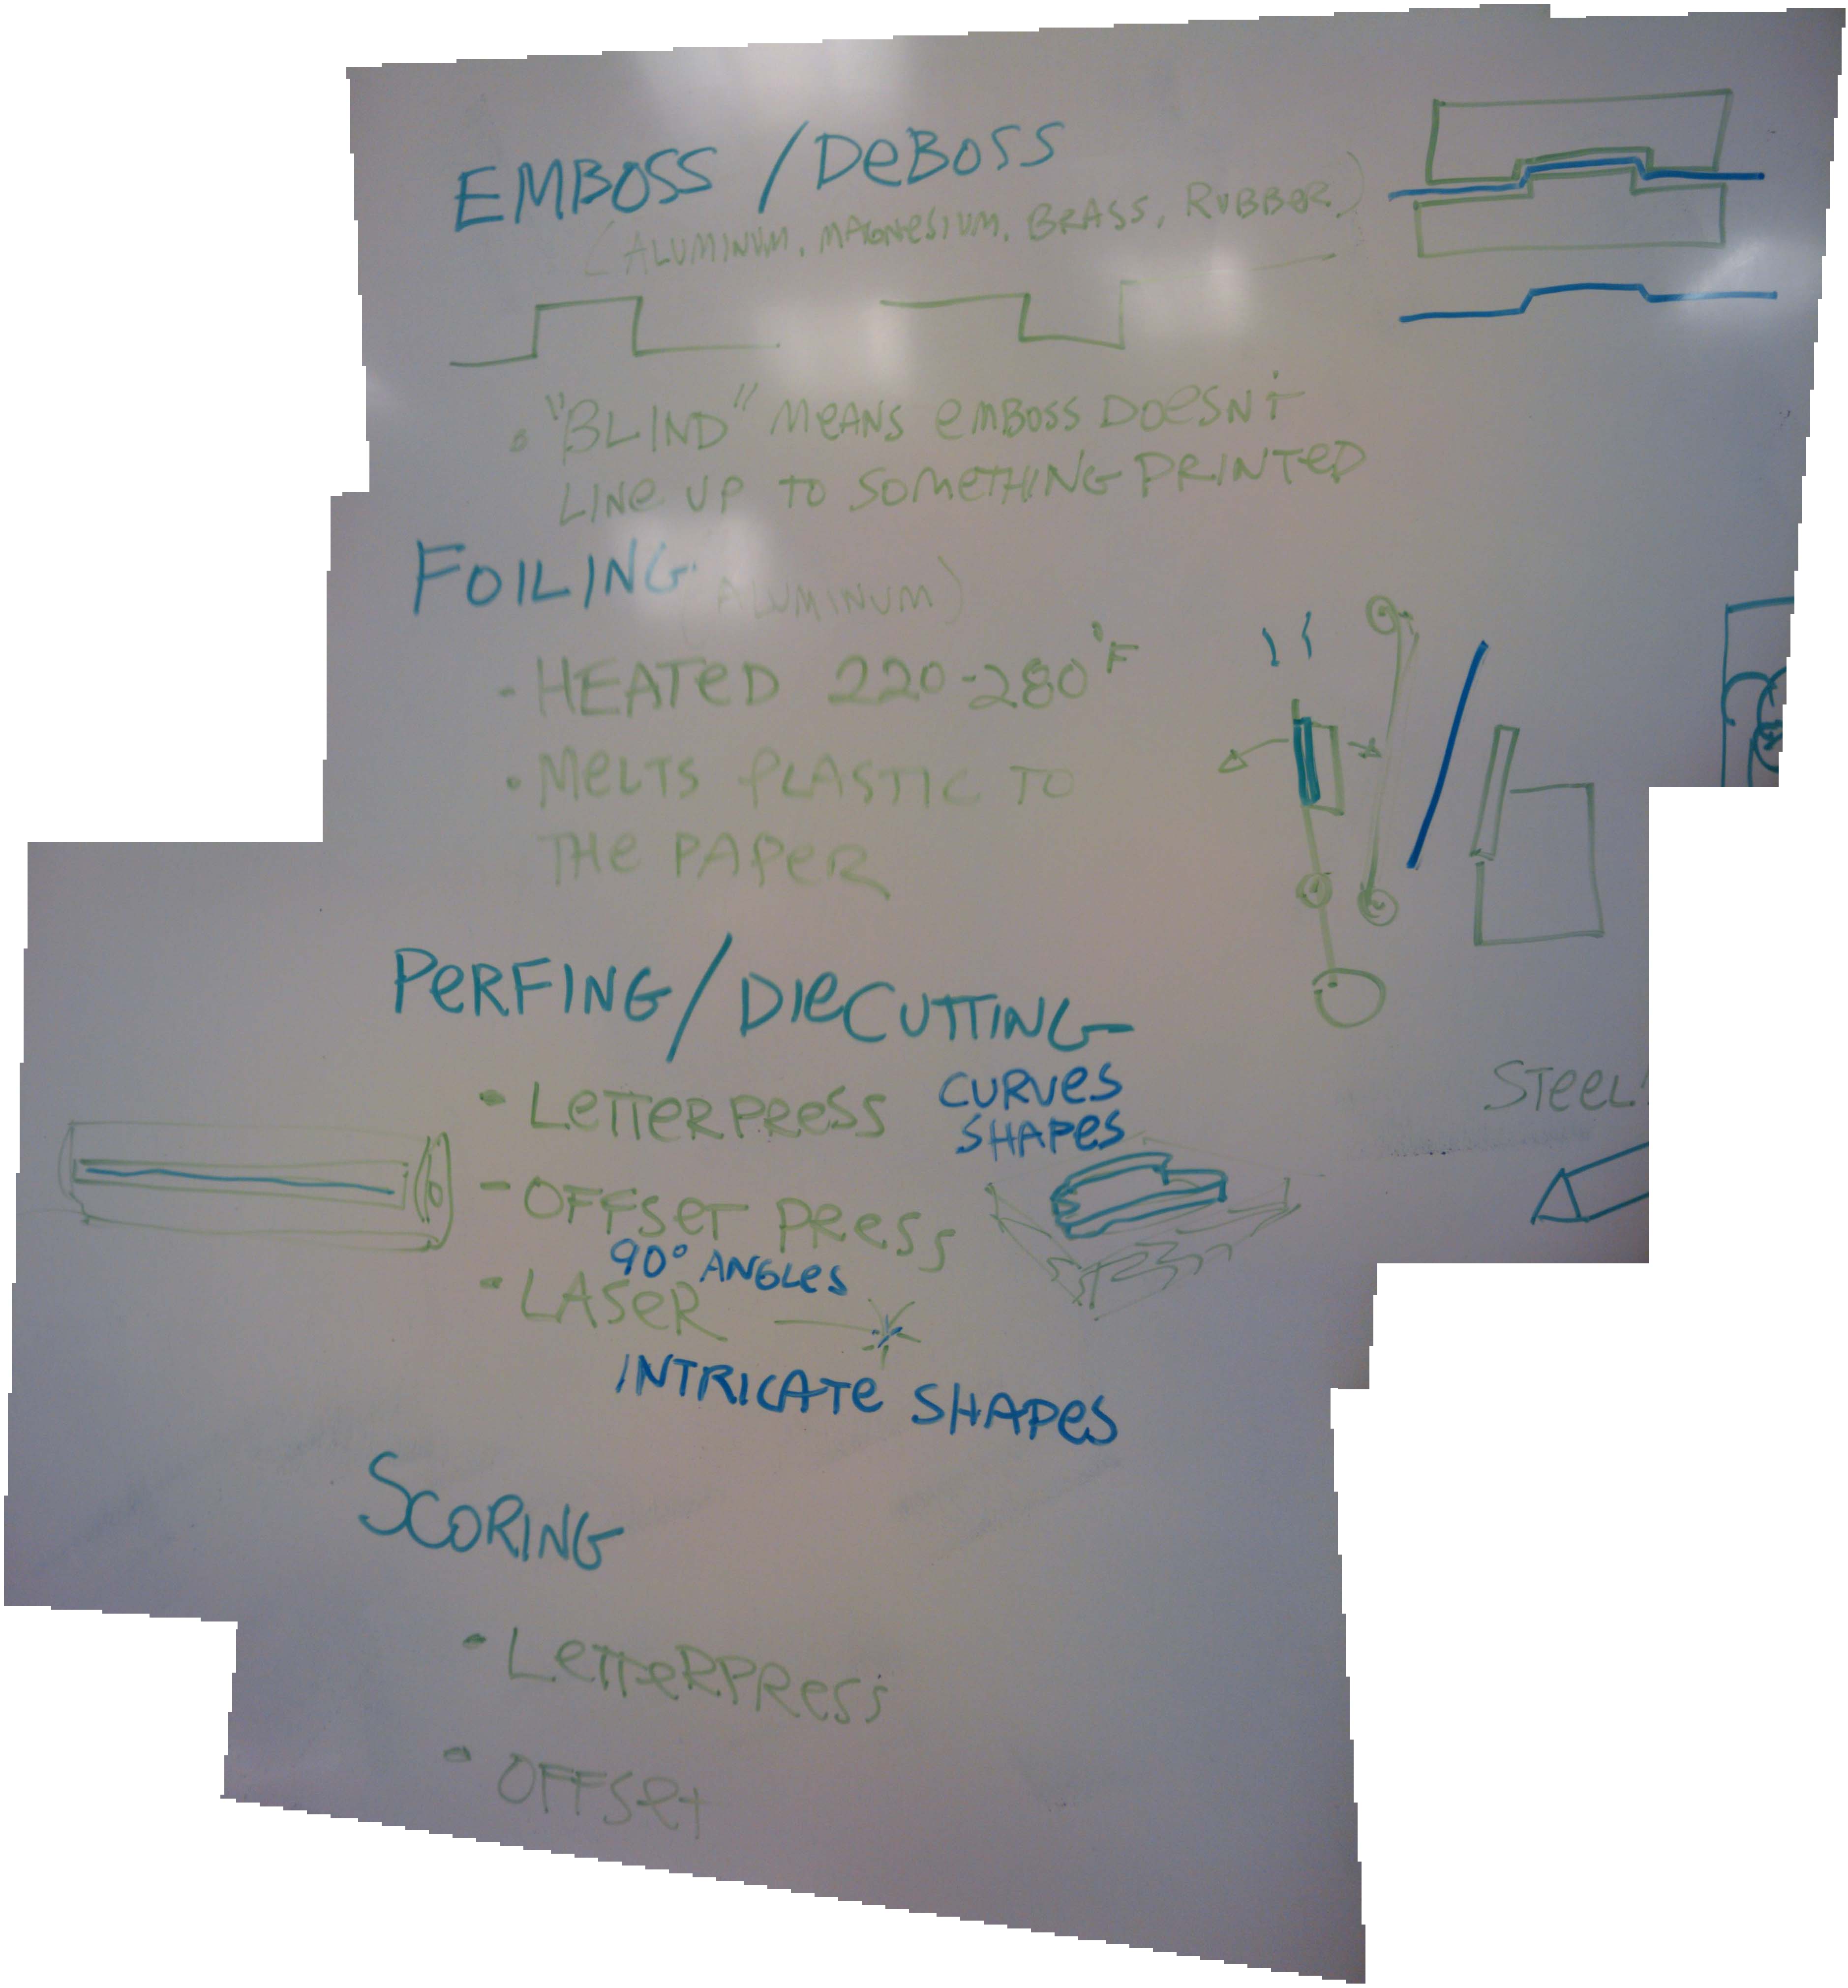 EMBOSS / DEBOSS
(ALUMINUM, MAGNESIUM, BRASS, RUBBER)
"BLIND" MEANS EMBOSS DOESN'T
LINE UP TO SOMETHING PRINTED
FOILING
(ALUMINUM)
- HEATED 220-280°F
• MELTS PLASTIC TO
THE PAPER
PERFING / DIECUTTING
- LETTERPRESS
CURVES
SHAPES
STEEL
- OFFSET PRESS
90° ANGLES
- LASER
INTRICATE SHAPES
SCORING
- LETTERPRESS
- OFFSET